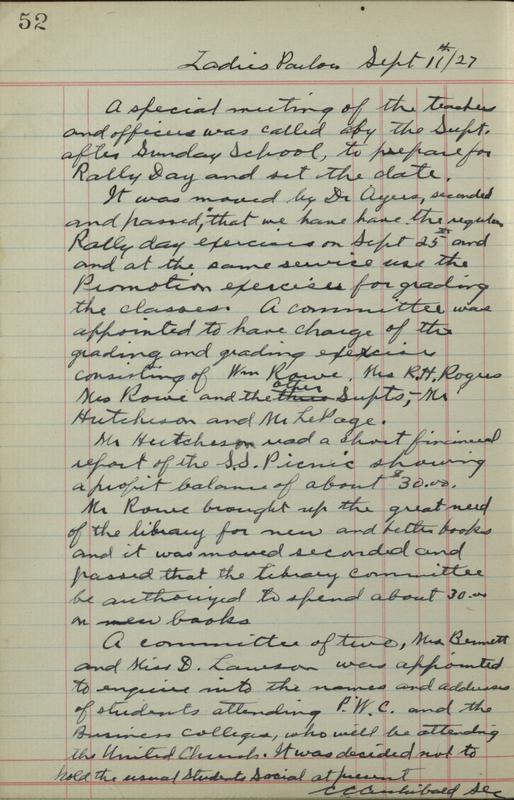 52
Ladies Parlor Sept 11th/27
A special meeting of the teachers
and officers was called by the Supt.
after Sunday School, to prepare for
Rally Day and set the date.
It was moved by Dr Ayers, seconded
and passed, that we have have the regular
Rally day exercises on Sept 25th and
and at the same service use the
Promotion exercises for grading
the classes. A committee was
appointed to have charge of the
grading and grading exercises
consisting of Wm Rowe, Mrs R.H. Rogers
Mrs Rowe and the other Supts, - Mr
Hutcheson and Mr LePage.
Mr Hutcheson read a short financial
report of the S.S. Picnic showing
a profit balance of about $30.00.
Mr Rowe brought up the great need
of the library for new and better books
and it was moved seconded and
passed that the library committee
be authorized to spend about 30.00
on new books
A committee of two, Mrs Bennett
and Miss D. Lawson was appointed
to enquire into the names and addresses
of students attending P.W.C. and the
Business colleges, who will be attending
the United Church. It was decided not to
hold the usual Students Social at present
CC Archibald Sec